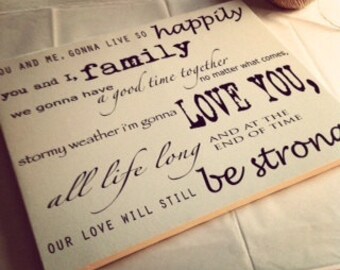 YOU AND ME, GONNA LIVE SO happily
you and I, family
we gonna have a good time together
no matter what comes,
stormy weather i'm gonna LOVE YOU,
all life long AND AT THE
END OF TIME
OUR LOVE WILL STILL be strong